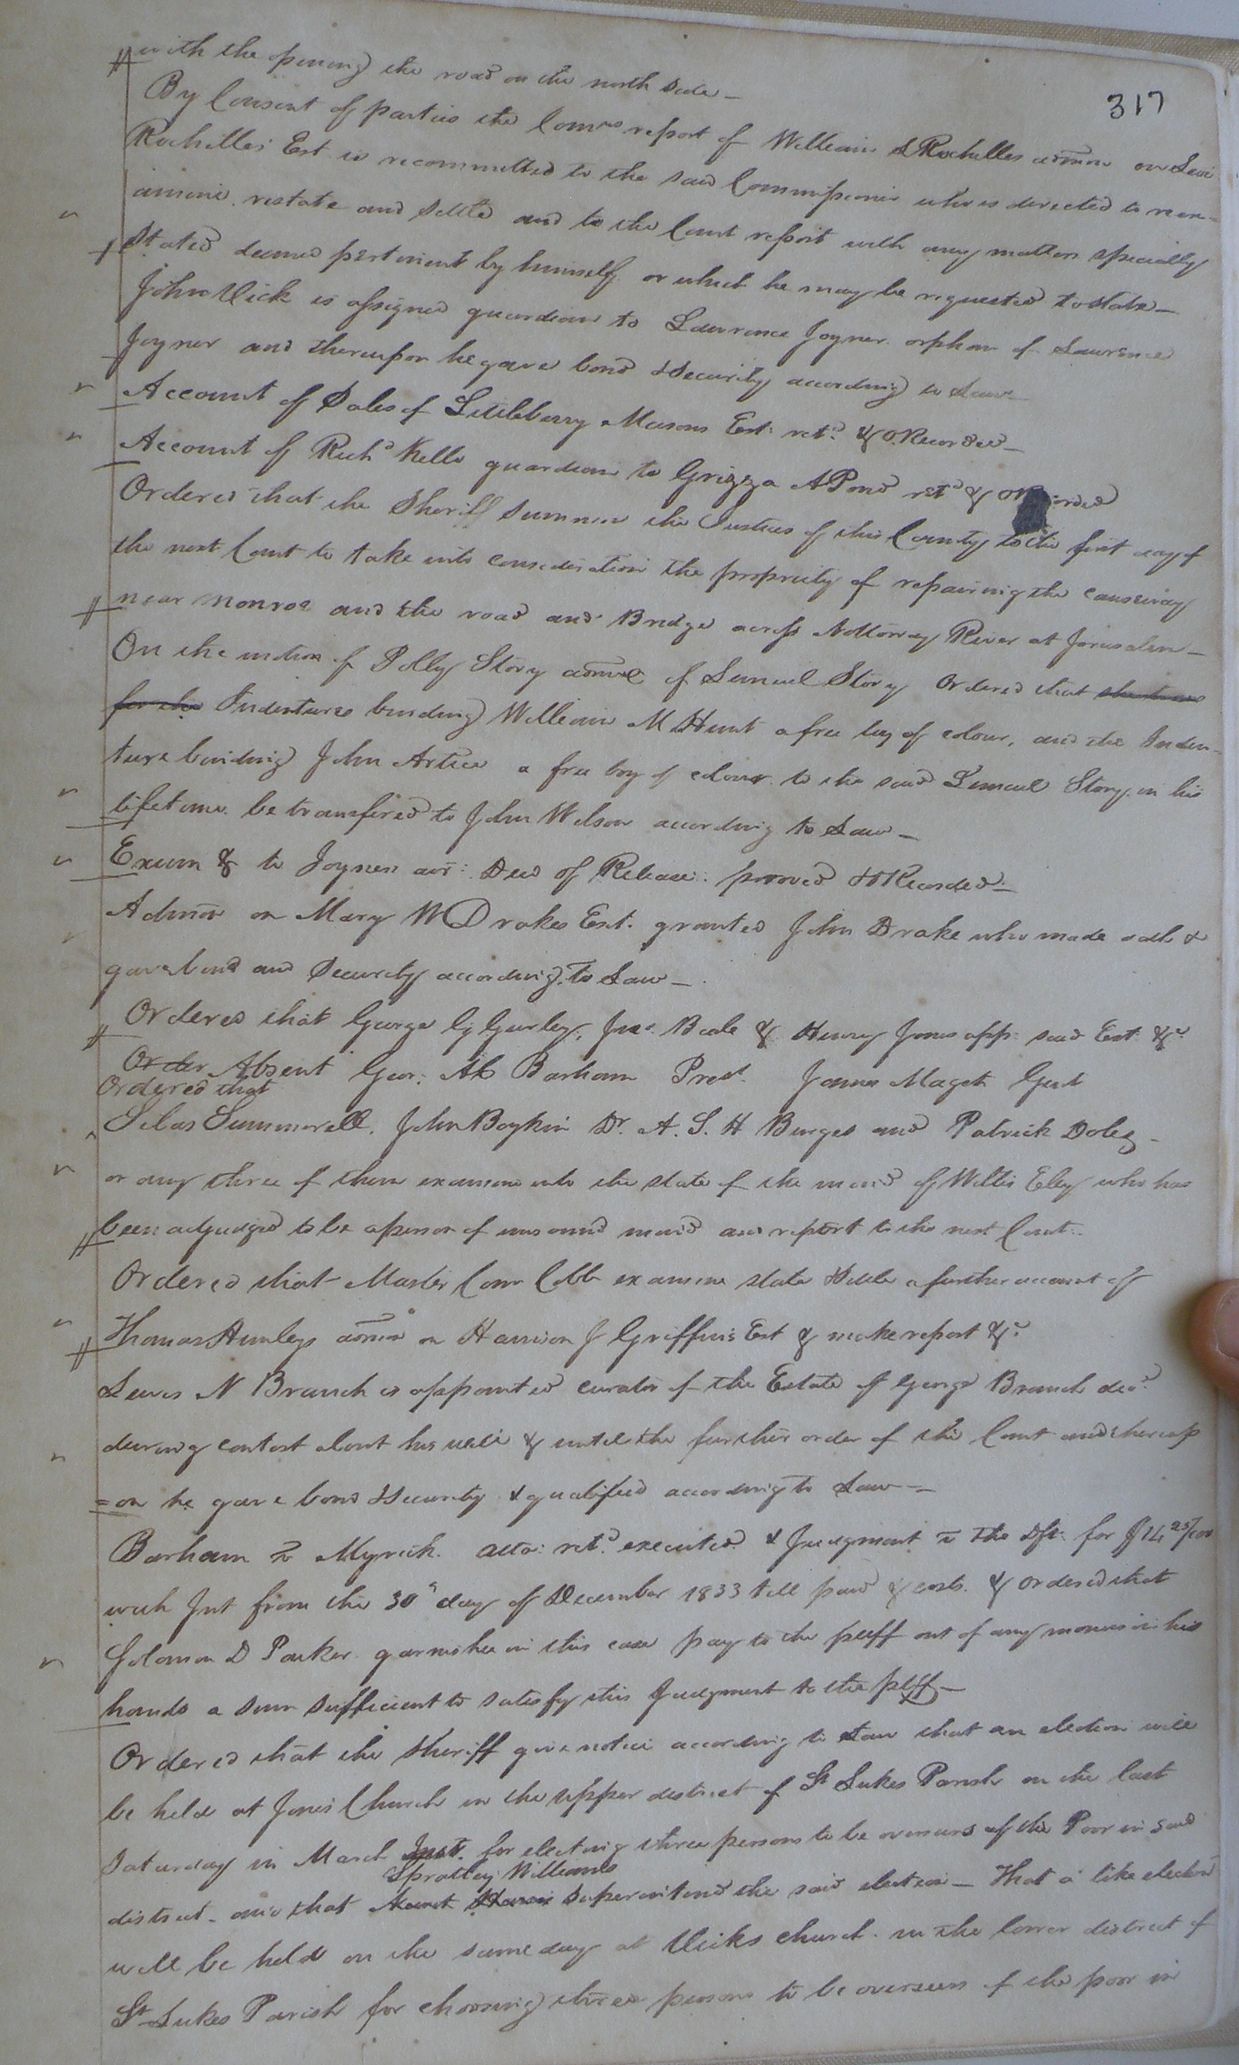 317
with the opening the road on the north side —
By Consent of parties the Comrs report of William Rochelles admon on Levi
Rochelles Est. is recommitted to the said Commissioner who is directed to reex=
amine, restate and settle and to the Court report with any matters specially
stated deemed pertinent by himself or which he may be requested to state —
John Vick is assigned guardian to Lawrence Joyner orphan of Lawrence
Joyner and thereupon he gave bond & Security according to Law
Account of Sales of Littleberry Masons Est: retd. & O. Recorded —
Account of Richd Kello guardian to Grizza A Pond retd & O Recorded
Ordered that the Sheriff summon the Justices of this County to the first day of
the next Court to take into consideration the propriety of repairing the causeway
near Monroe and the road and Bridge across Nottoway River at Jerusalem —
On the motion of Polly Story admx of Lemuel Story Ordered that
for the Indentures binding William M Hunt a free boy of colour, and the Inden-
ture binding John Artice a free boy of colour to the said Lemuel Story in his
lifetime be transfered to John Wilson according to Law —
Exum & to Joyner Deed of Release: prooved & O Recorded —
Admon on Mary W Drakes Est. granted John Drake who made oath &
gave bond and Security according to Law —
Ordered that George G Gurley, Jno. Beale & Henry Jones app: said Est &c
Order Absent Geo: Barham Prest. James Maget Gent
Ordered that
Silas Summerell, John Boykin Dr. A. S. H Burges and Patrick Doles
or any three of them examine into the state of the mind of Willis Eley who has
been adjudged to be a person of unsound mind and report to the next Court.
Ordered that Master Com Cobb examine state & settle a further account of
Thomas Humleys admon on Harrison J Griffins Est & make report &c
Lewis N Branch is appointed curator of the Estate of George Branch decd.
during contest about his will & until the further order of this Court and thereup
=on he gave bond & Security & qualified according to Law —
Barham vs Myrick. atta: retd. executed & Judgment vs The Dft. for $14 25/100
with Int from the 30th day of December 1833 till paid & costs. & ordered that
Solomon D Parker garnishee in this case pay to the plff out of any monies in his
hands a sum sufficient to satisfy this Judgment to the plff —
Ordered that the Sheriff give notice according to Law that an election will
be held at Jones Church in the upper district of St Lukes Parish on the last
Saturday in March Inst. for electing three persons to be overseers of the Poor in said
Spratley Williams
district. and that superintend the said election — That a like election
will be held on the same day at Vicks Church in the lower district of
St Lukes Parish for choosing three persons to be overseers of the poor in